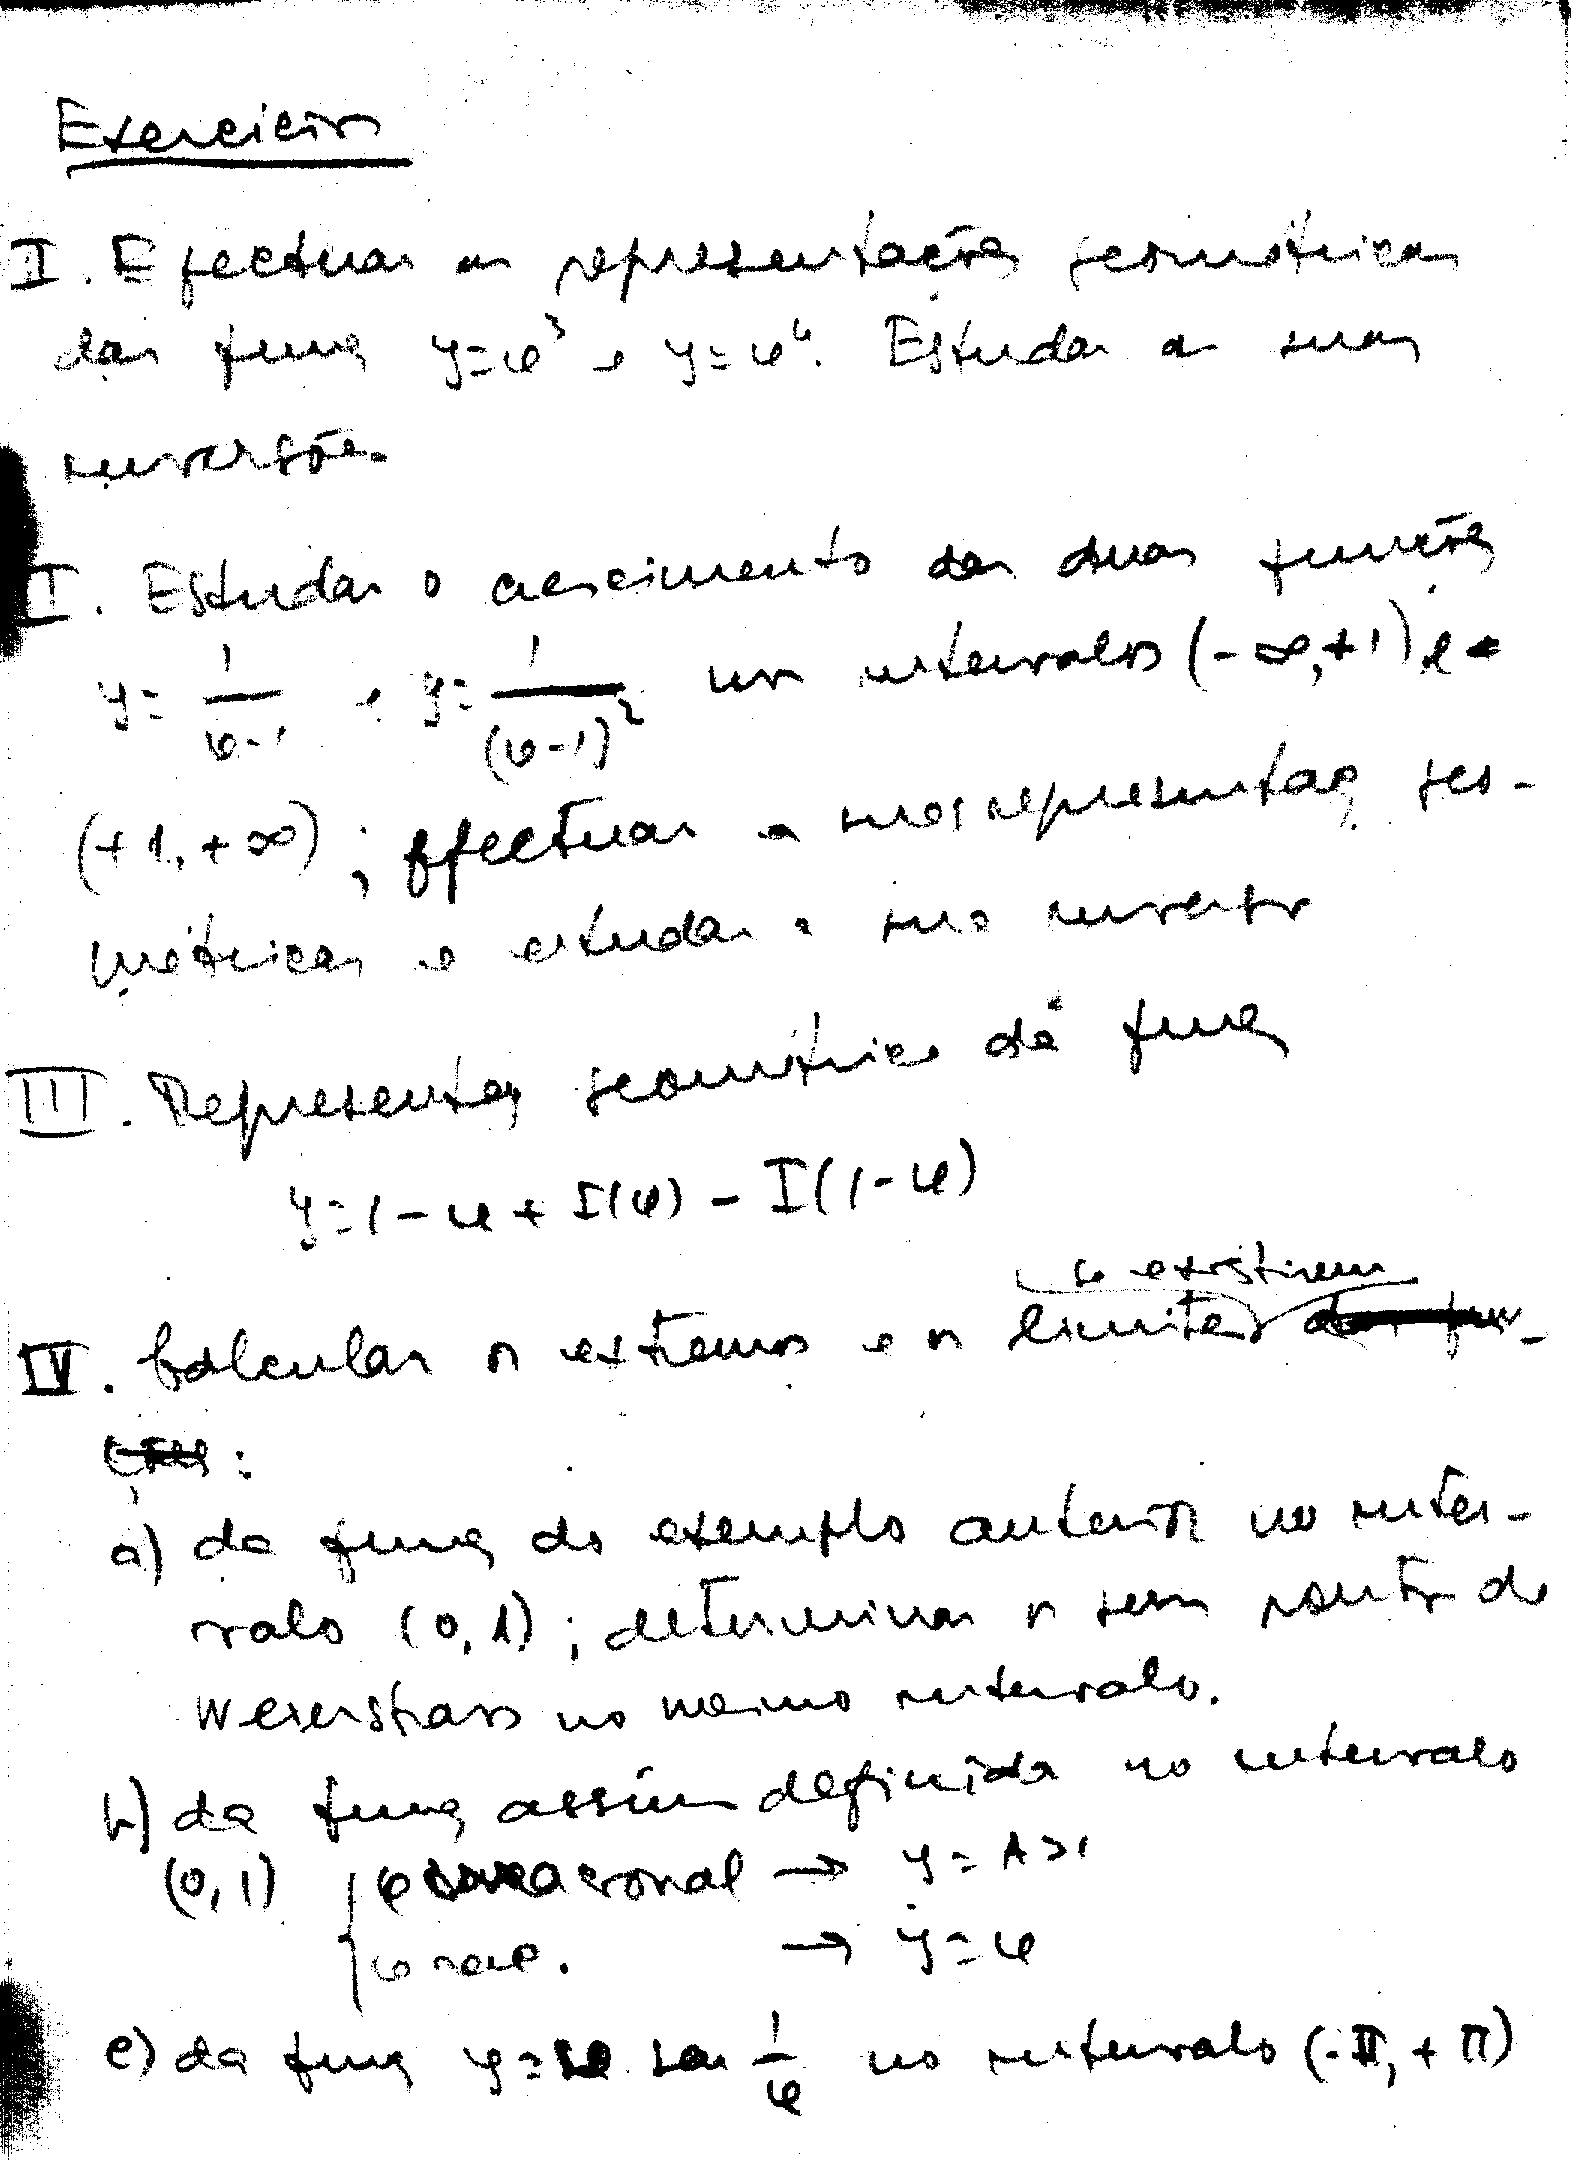 Exercícios
I. Efectuar as representações geométricas
das funç y=x³ e y=x⁴. Estudar as suas
inversões.
II. Estudar o crescimento das duas funções
y= 1/(x-1) e y= 1/(x-1)² nos intervalos (-∞,+1) e
(+1,+∞); efectuar as suas representaç geo-
métricas e estudar a sua inversão
III. Representaç geométrica da funç
y=1-x+I(x)-I(1-x)
se existirem
IV. Calcular os extremos e os limites das fun-
ções:
a) da funç do exemplo anterior no inter-
valo (0,1); determinar os seus pontos de
Weierstrass no mesmo intervalo.
b) da funç assim definida no intervalo
(0,1) { x irracional → y=A>1
x rac. → y=x
c) da funç y= sen 1/x no intervalo (-π,+π)